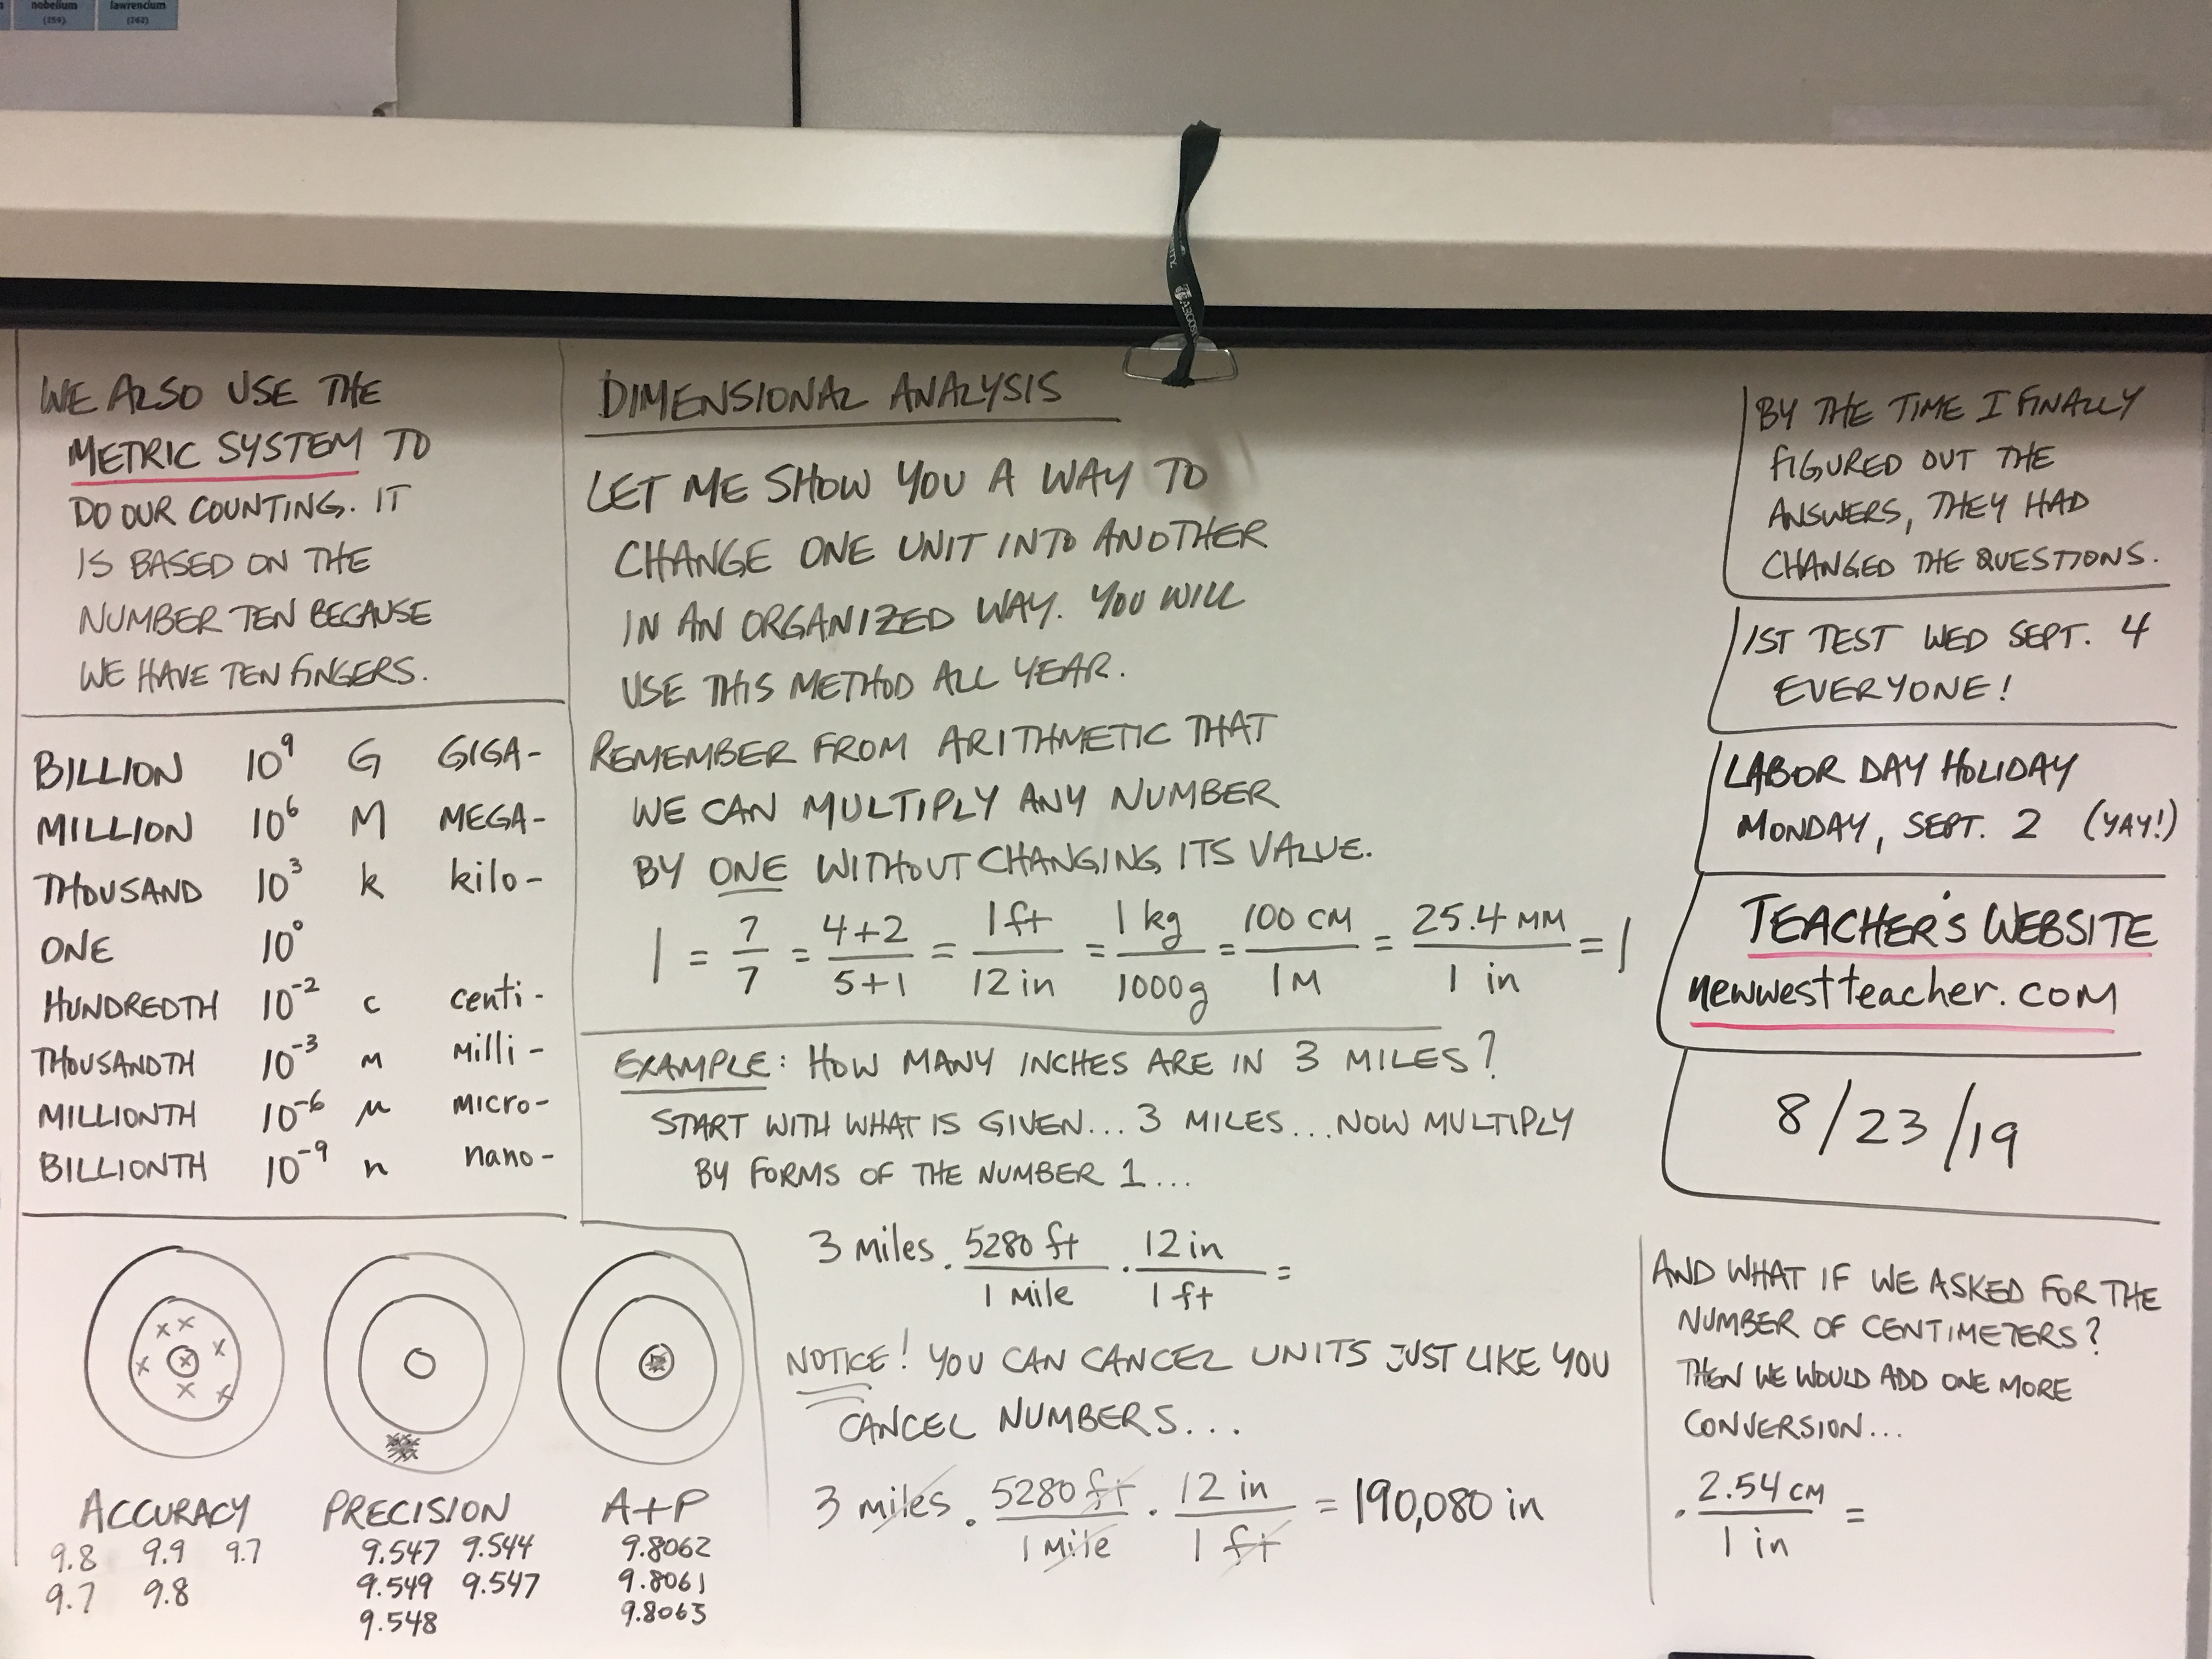 nobelium
(259)
lawrencium
(262)
WE ALSO USE THE
METRIC SYSTEM TO
DO OUR COUNTING. IT
IS BASED ON THE
NUMBER TEN BECAUSE
WE HAVE TEN FINGERS.
BILLION 10⁹ G GIGA-
MILLION 10⁶ M MEGA-
THOUSAND 10³ k kilo-
ONE 10⁰
HUNDREDTH 10⁻² c centi-
THOUSANDTH 10⁻³ m milli-
MILLIONTH 10⁻⁶ μ micro-
BILLIONTH 10⁻⁹ n nano-
ACCURACY
9.8 9.9 9.7
9.7 9.8
PRECISION
9.547 9.544
9.549 9.547
9.548
A+P
9.8062
9.8061
9.8063
DIMENSIONAL ANALYSIS
LET ME SHOW YOU A WAY TO
CHANGE ONE UNIT INTO ANOTHER
IN AN ORGANIZED WAY. YOU WILL
USE THIS METHOD ALL YEAR.
REMEMBER FROM ARITHMETIC THAT
WE CAN MULTIPLY ANY NUMBER
BY ONE WITHOUT CHANGING ITS VALUE.
1 = 7/7 = (4+2)/(5+1) = 1 ft/12 in = 1 kg/1000g = 100 CM/1M = 25.4 MM/1 in = 1
EXAMPLE: HOW MANY INCHES ARE IN 3 MILES?
START WITH WHAT IS GIVEN... 3 MILES... NOW MULTIPLY
BY FORMS OF THE NUMBER 1...
3 miles · 5280 ft/1 mile · 12 in/1 ft =
NOTICE! YOU CAN CANCEL UNITS JUST LIKE YOU
CANCEL NUMBERS...
3 miles · 5280 ft/1 mile · 12 in/1 ft = 190,080 in
BY THE TIME I FINALLY
FIGURED OUT THE
ANSWERS, THEY HAD
CHANGED THE QUESTIONS.
1ST TEST WED SEPT. 4
EVERYONE!
LABOR DAY HOLIDAY
MONDAY, SEPT. 2 (YAY!)
TEACHER'S WEBSITE
newwestteacher.com
8/23/19
AND WHAT IF WE ASKED FOR THE
NUMBER OF CENTIMETERS?
THEN WE WOULD ADD ONE MORE
CONVERSION...
· 2.54 CM/1 in =